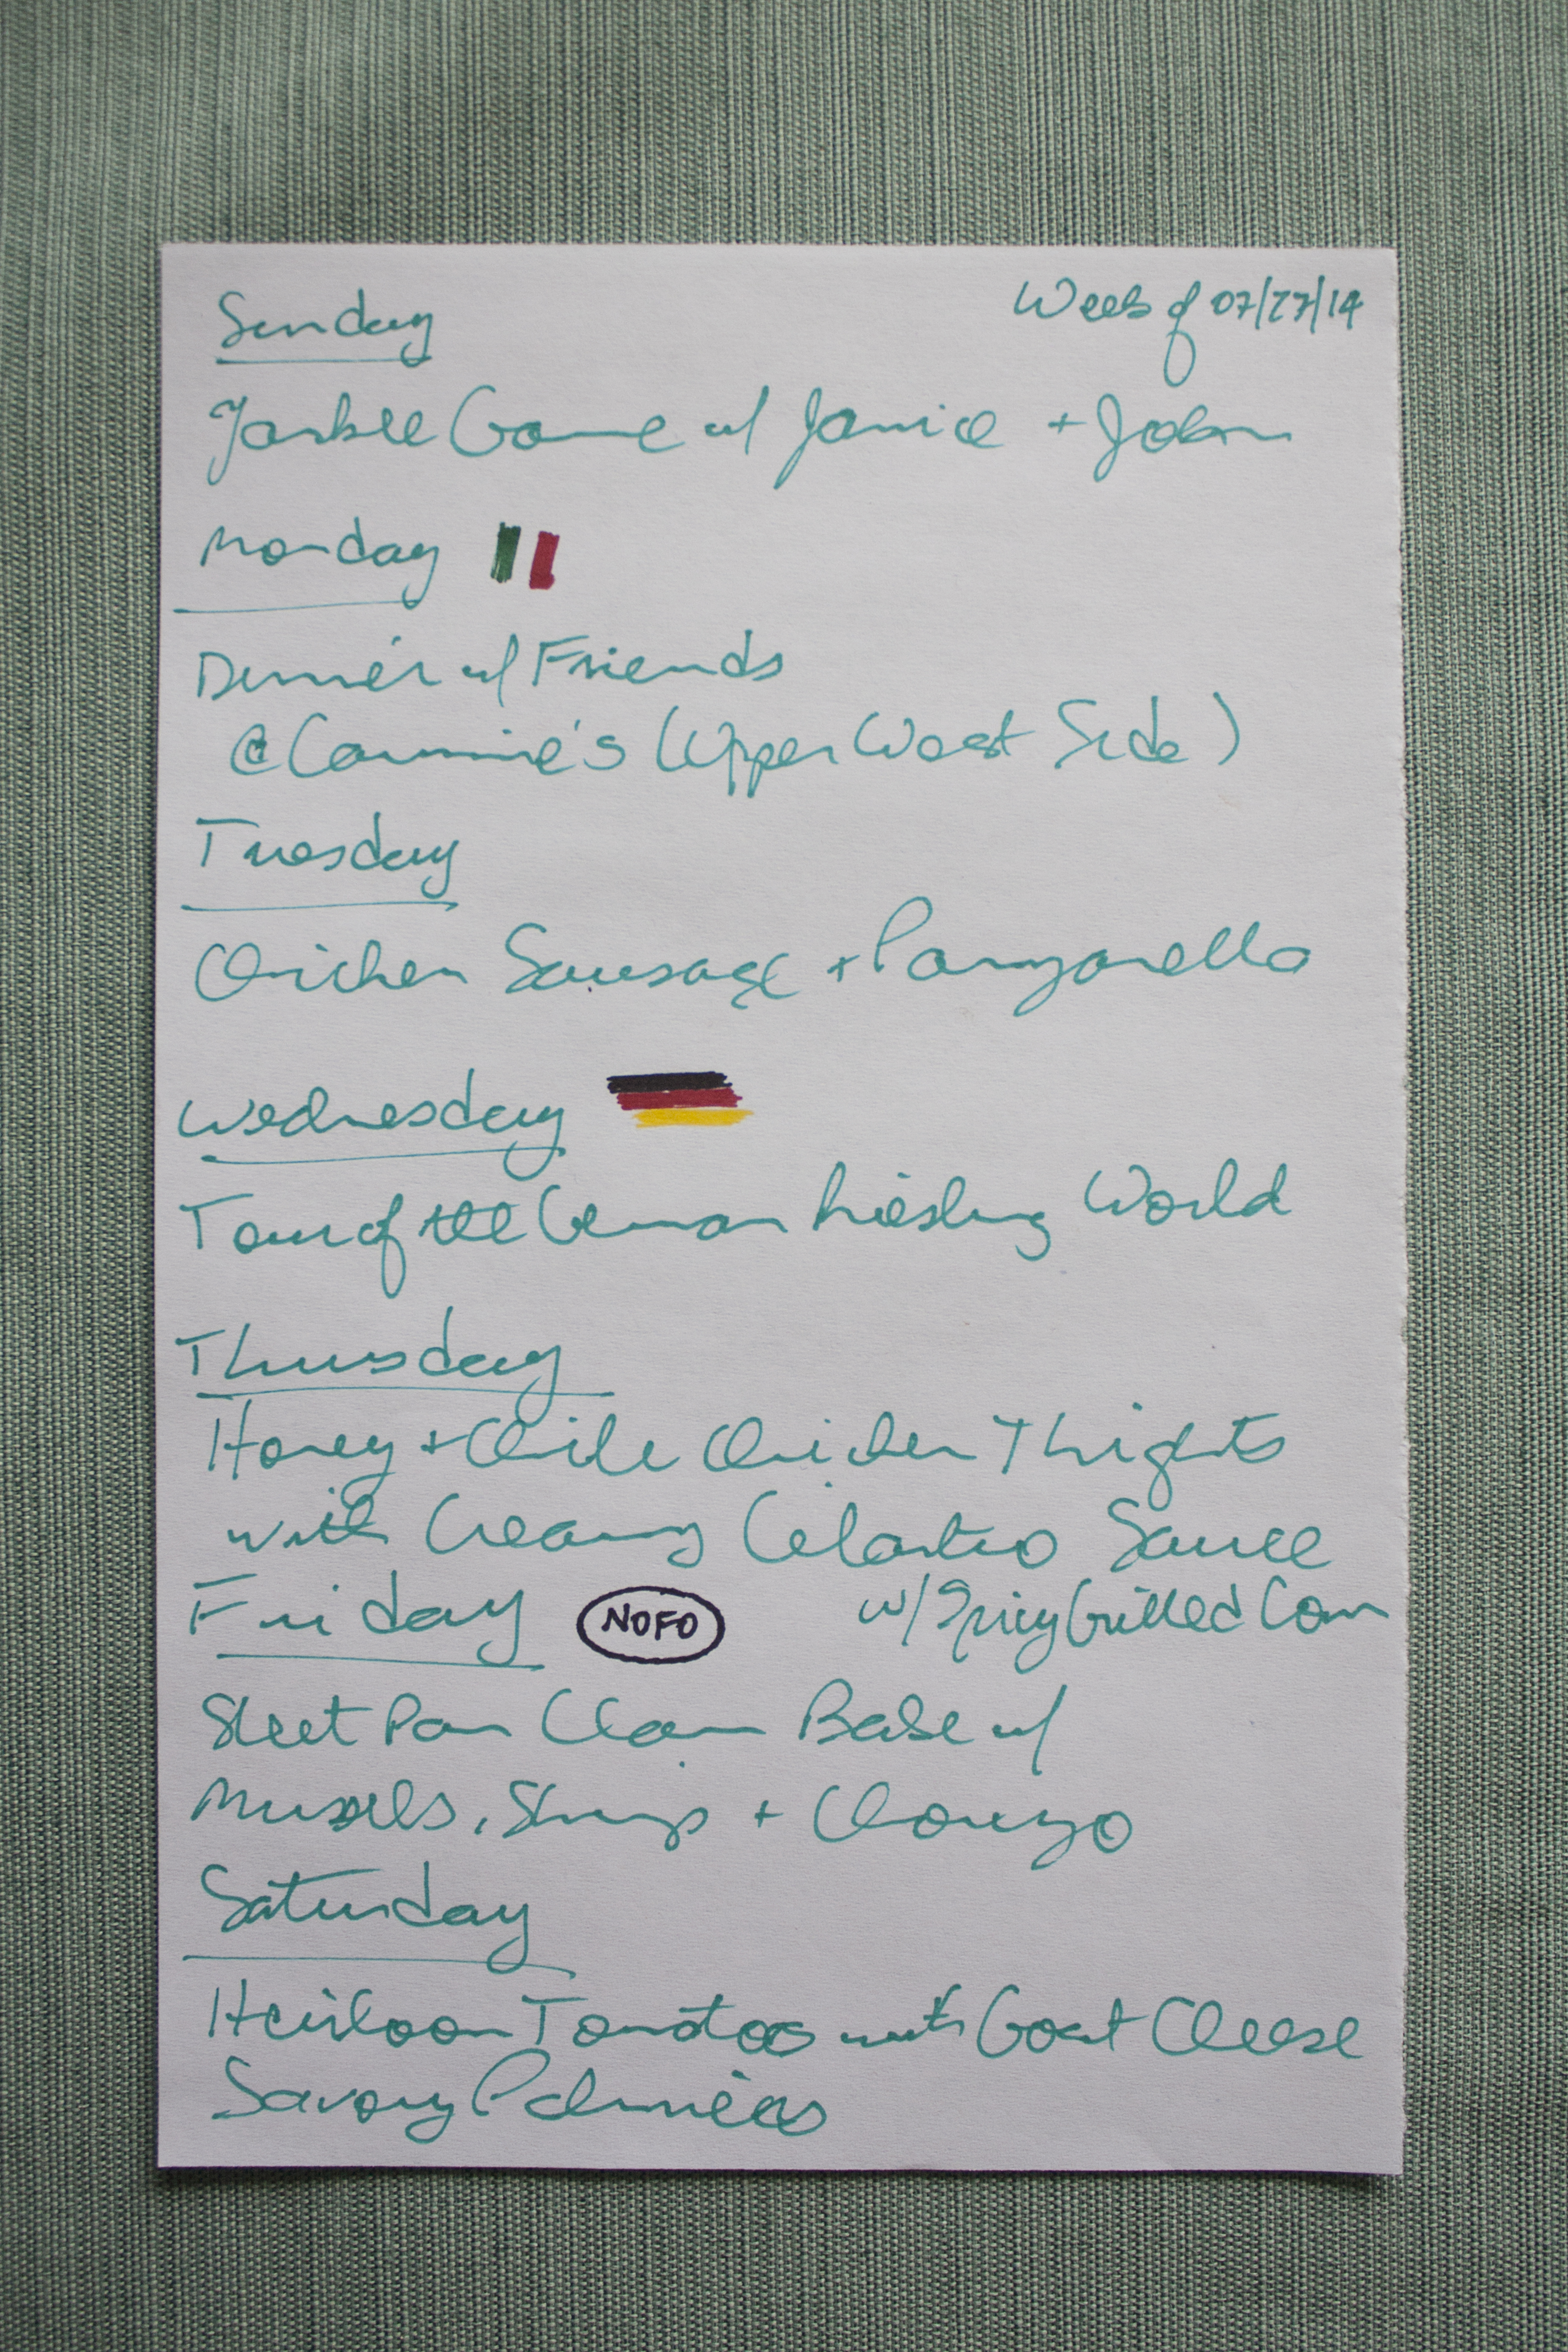 Sunday
Week of 07/27/14
Yankee Game w/ Janice + John
Monday
Dinner w/ Friends
@ Carmine's (Upper West Side)
Tuesday
Chicken Sausage + Panzanella
Wednesday
Tour of the German Riesling World
Thursday
Honey + Chile Chicken Thights
with Creamy Cilantro Sauce
w/ Spicy Grilled Corn
Friday NOFO
Sheet Pan Clam Bake w/
Mussels, Shrimp + Chorizo
Saturday
Heirloom Tomatoes with Goat Cheese
Savory Palmiers